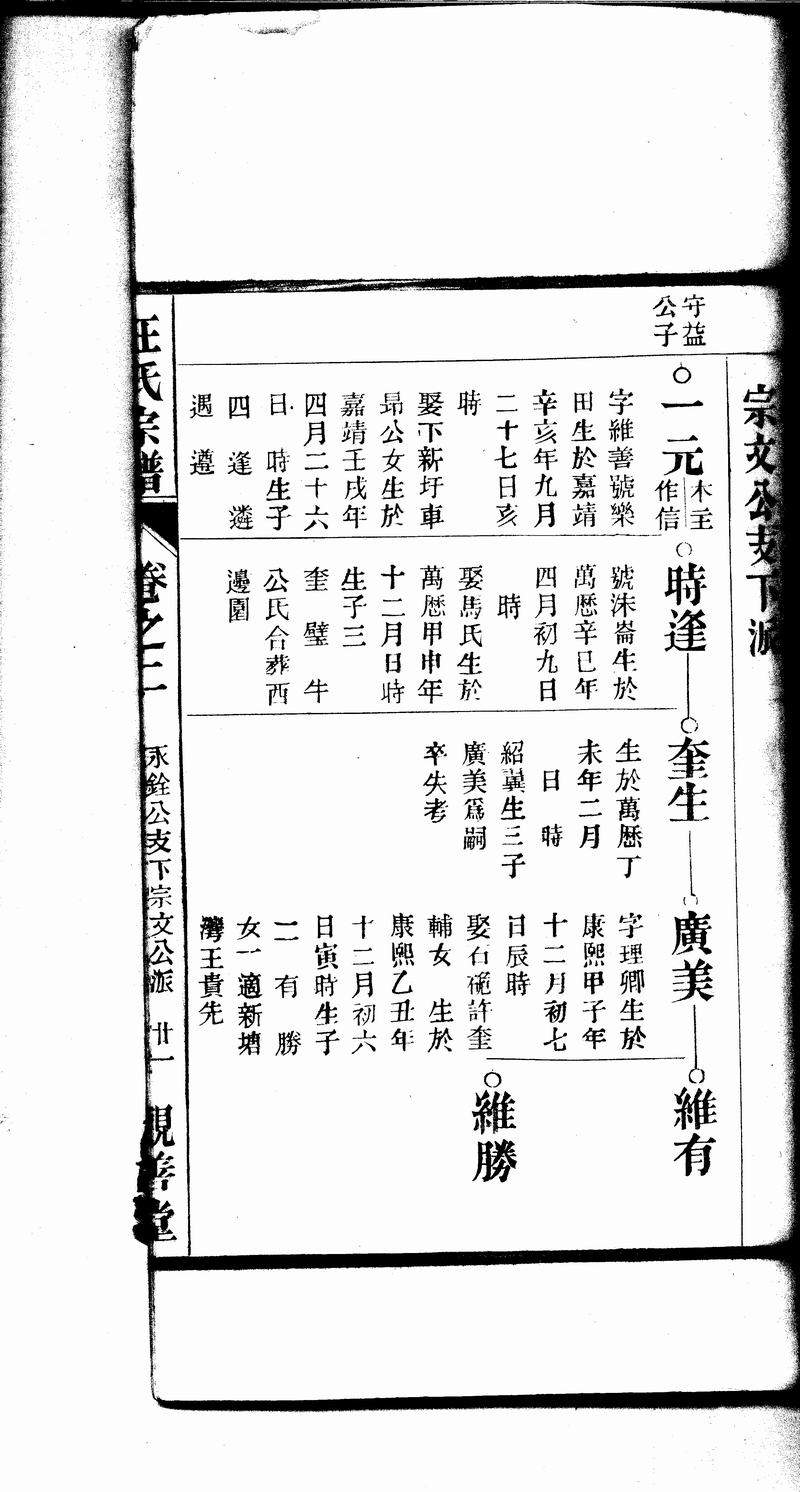 宗文公支下派
守益
公子
一元
木主
作信
字維善號樂
田生於嘉靖
辛亥年九月
二十七日亥
時
娶下新圩車
昂公女生於
嘉靖壬戌年
四月二十六
日 時生子
四 逢 遴
遇 遵
時逢
號洙崙生於
萬歷辛巳年
四月初九日
時
娶馬氏生於
萬歷甲申年
十二月日時
生子三
奎 璧 牛
公氏合葬西
邊園
奎生
生於萬歷丁
未年二月
日 時
紹翼生三子
廣美爲嗣
卒失考
廣美
字理卿生於
康熙甲子年
十二月初七
日辰時
娶石硊許奎
輔女 生於
康熙乙丑年
十二月初六
日寅時生子
二 有 勝
女一適新塘
灣王貴先
維有
維勝
汪氏宗譜
卷之二
永銓公支下宗文公派
廿一
親善堂